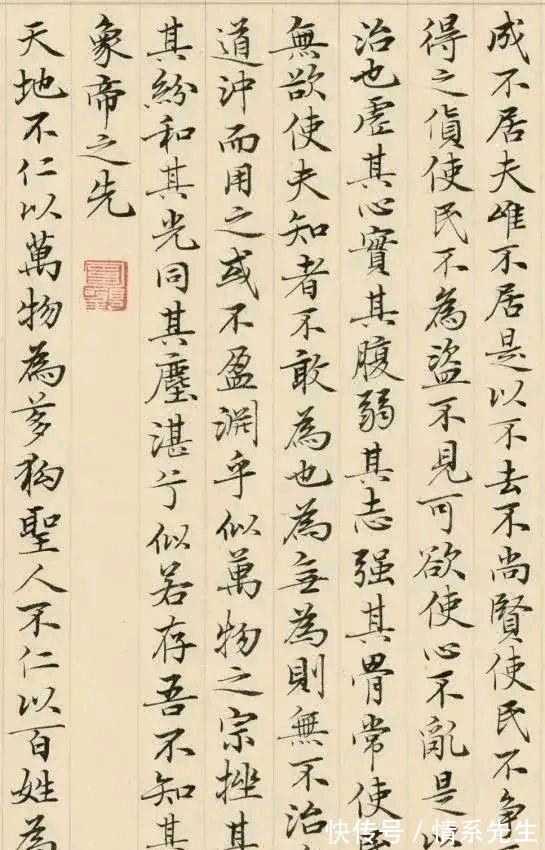 成不居夫唯不居是以不去不尚賢使民不争
得之貨使民不為盜不見可欲使心不亂是
治也虛其心實其腹弱其志强其骨常使
無欲使夫知者不敢為也為無為則無不治
道沖而用之或不盈淵乎似萬物之宗挫其
其紛和其光同其塵湛兮似若存吾不知其
象帝之先
天地不仁以萬物為芻狗聖人不仁以百姓為
快传号/情系先生